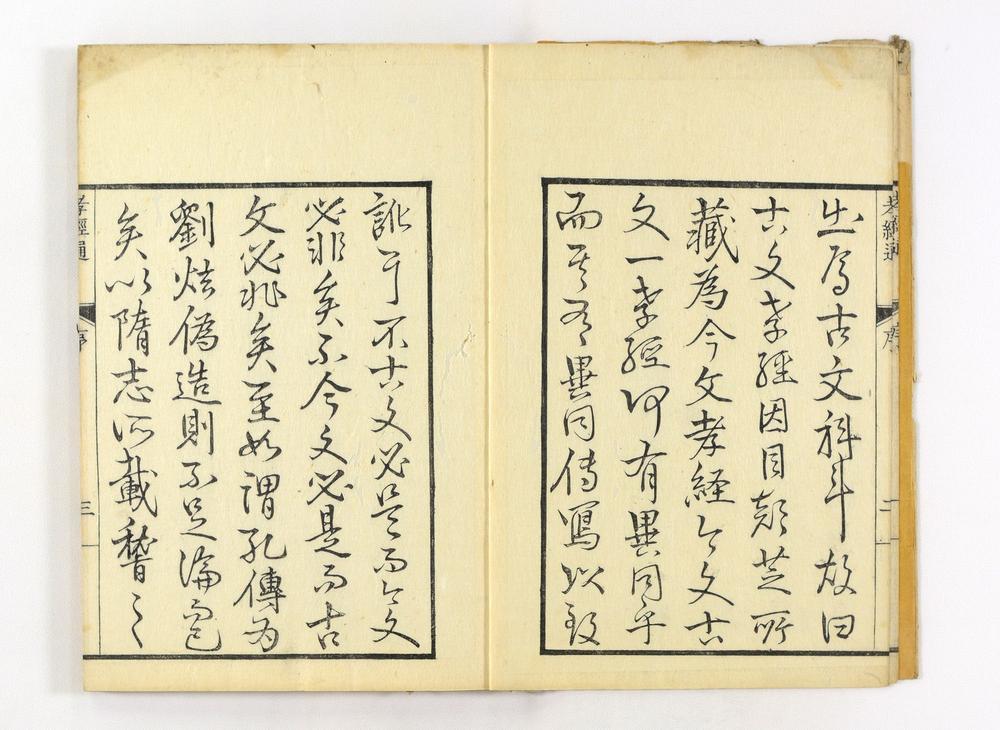 出焉古文科斗故曰
古文孝經因目顏芝所
藏為今文孝経今文古
文一孝經何有異同乎
而其有異同傳寫以致
訛耳不古文必是而今文
必非矣不今文必是而古
文必非矣至如謂孔傳為
劉炫偽造則不足論也
矣以隋志所載稽之
孝經通
序
二
孝經通
序
三